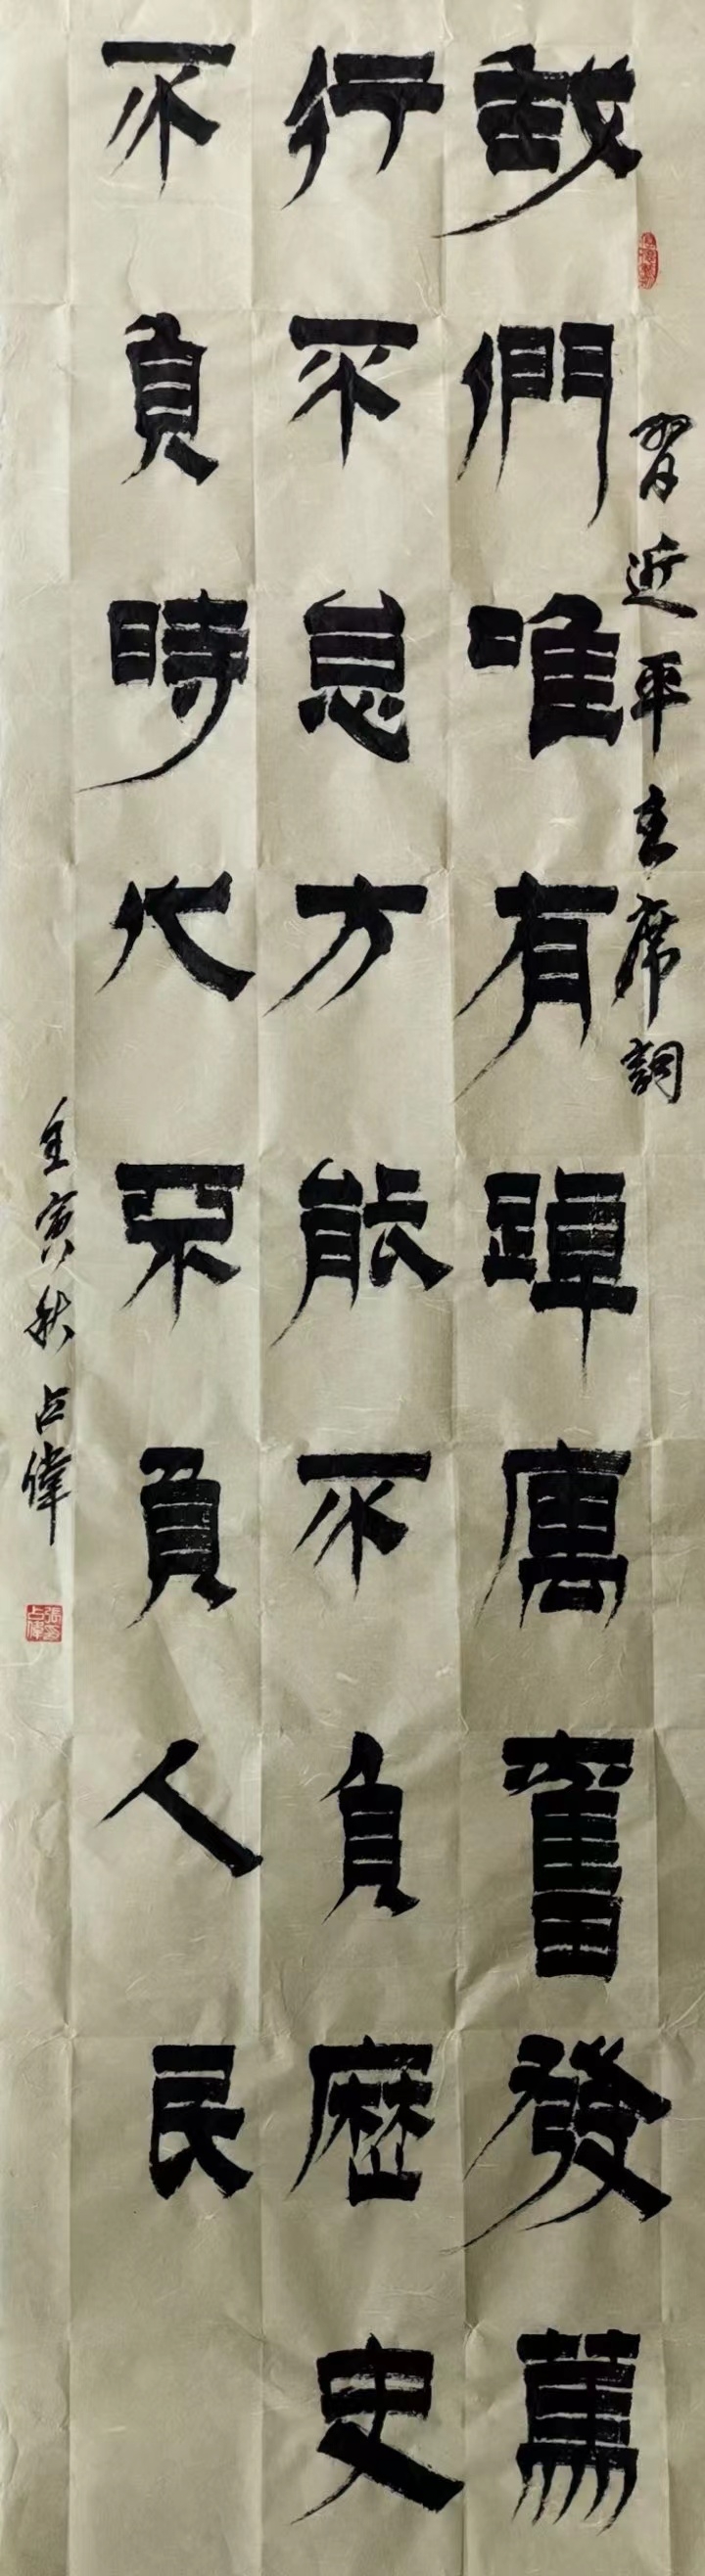 習近平主席詞
我們唯有踔厲奮發篤
行不怠方能不負歷史
不負時代不負人民
壬寅秋占偉